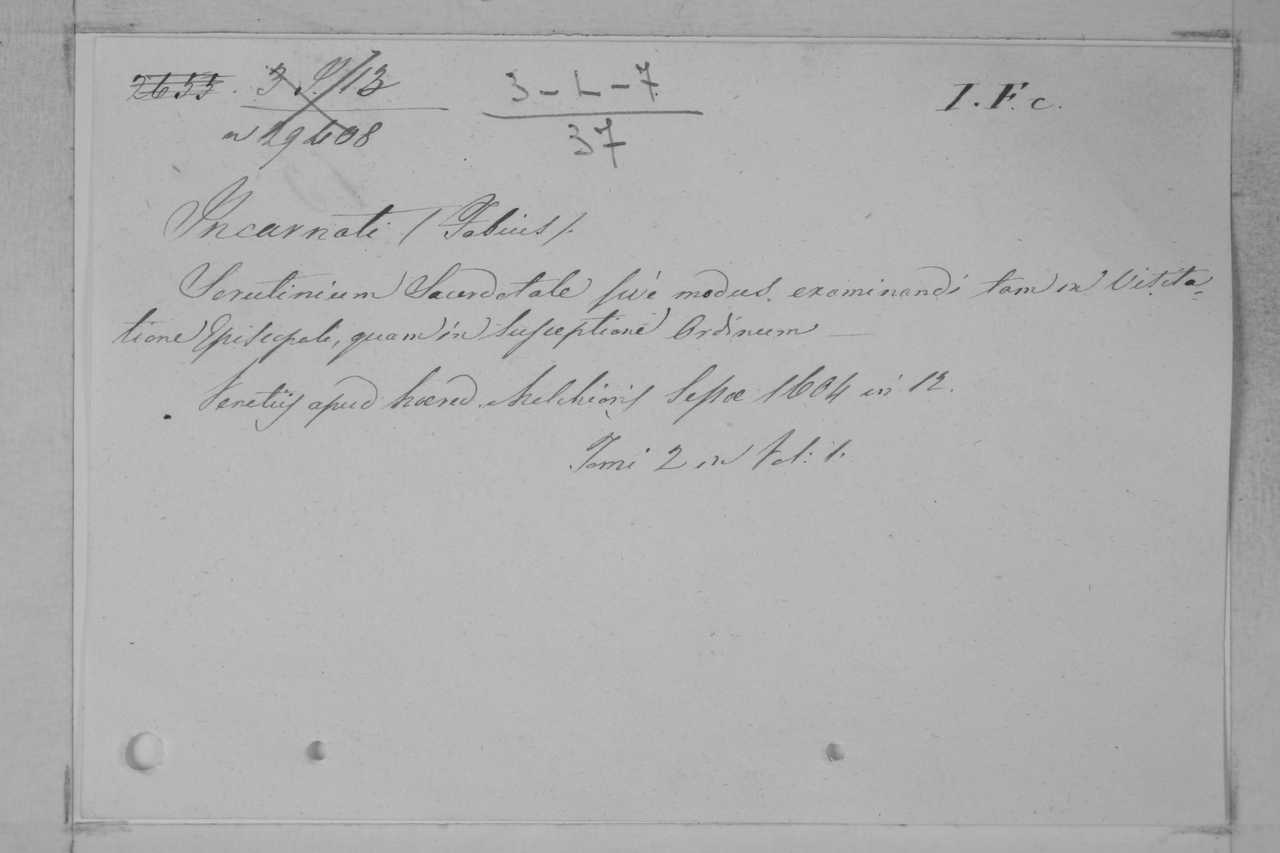 2653. 3 /13 3-L-7 I.F.c.
29408 37
Incarnati (Fabius).
Scrutinium Sacerdotale sive modus examinandi tam in Visita-
tione Episcopali, quam in Susceptione Ordinum —
Venetijs apud hæred. Melchioris Sessæ 1604 in 12.
Tomi 2 in Vol: 1.